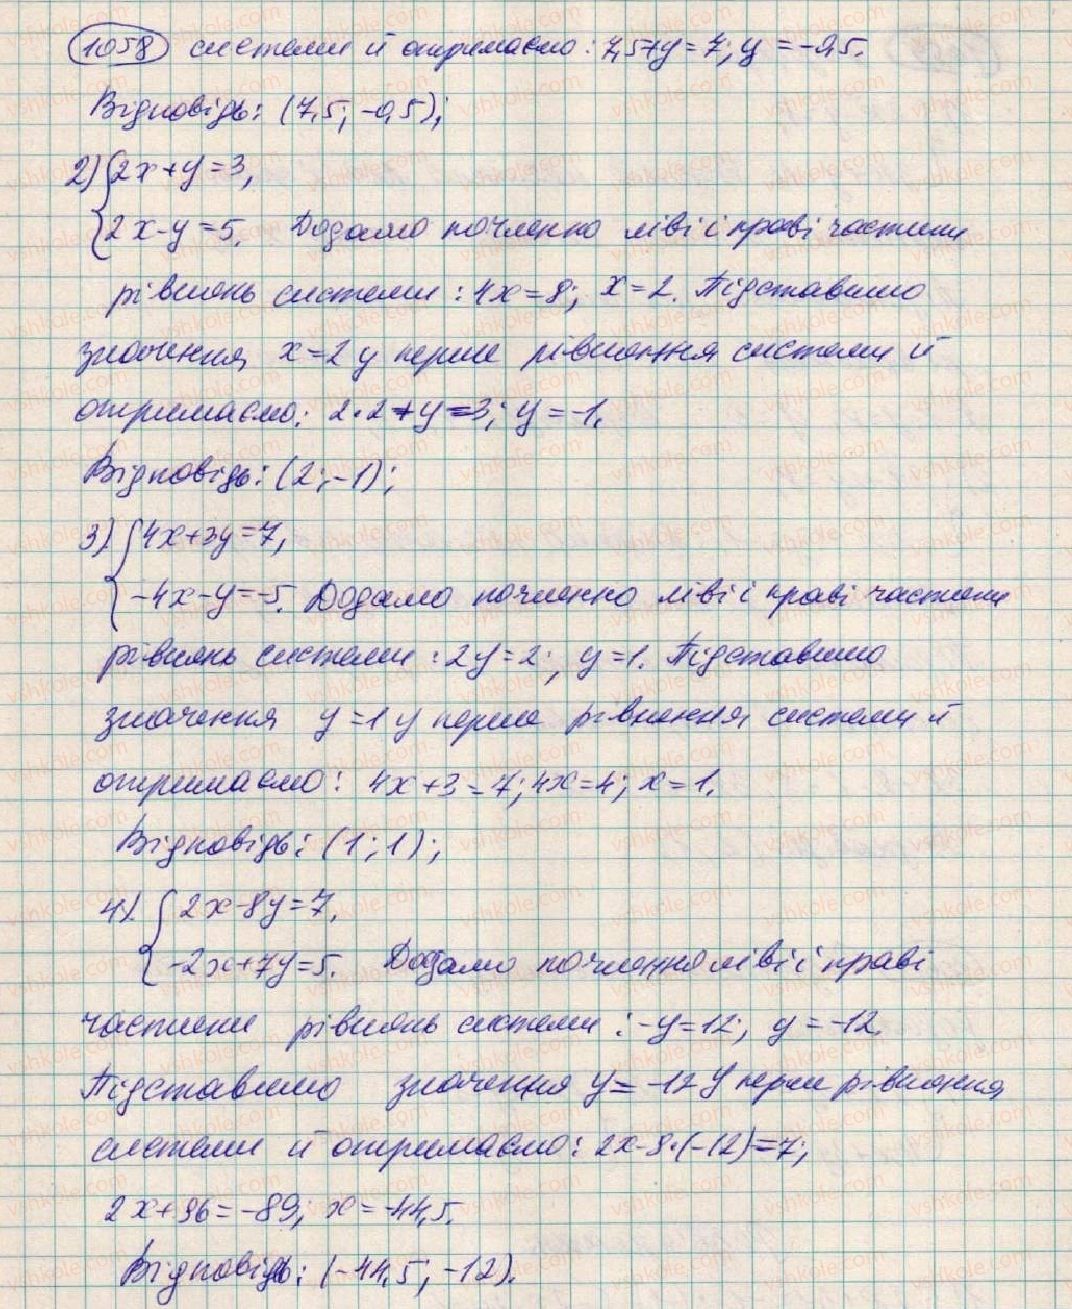 1058 системи й отримаємо: 7,5+y=7; y=-0,5.
Відповідь: (7,5; -0,5);
2) {2x+y=3,
2x-y=5. Додамо почленно ліві і праві частини
рівнянь системи: 4x=8; x=2. Підставимо
значення x=2 у перше рівняння системи й
отримаємо: 2·2+y=3; y=-1.
Відповідь: (2; -1);
3) {4x+3y=7,
-4x-y=-5. Додамо почленно ліві і праві частини
рівнянь системи: 2y=2; y=1. Підставимо
значення y=1 у перше рівняння системи й
отримаємо: 4x+3=7; 4x=4; x=1.
Відповідь: (1; 1);
4) {2x-8y=7,
-2x+7y=5. Додамо почленно ліві і праві
частини рівнянь системи: -y=12; y=-12.
Підставимо значення y=-12 у перше рівняння
системи й отримаємо: 2x-8·(-12)=7;
2x+96=-89; x=-44,5.
Відповідь: (-44,5; -12).